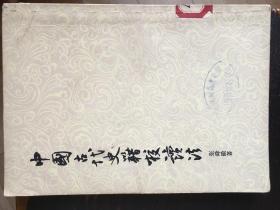 中國古代史籍校讀法
張舜徽著